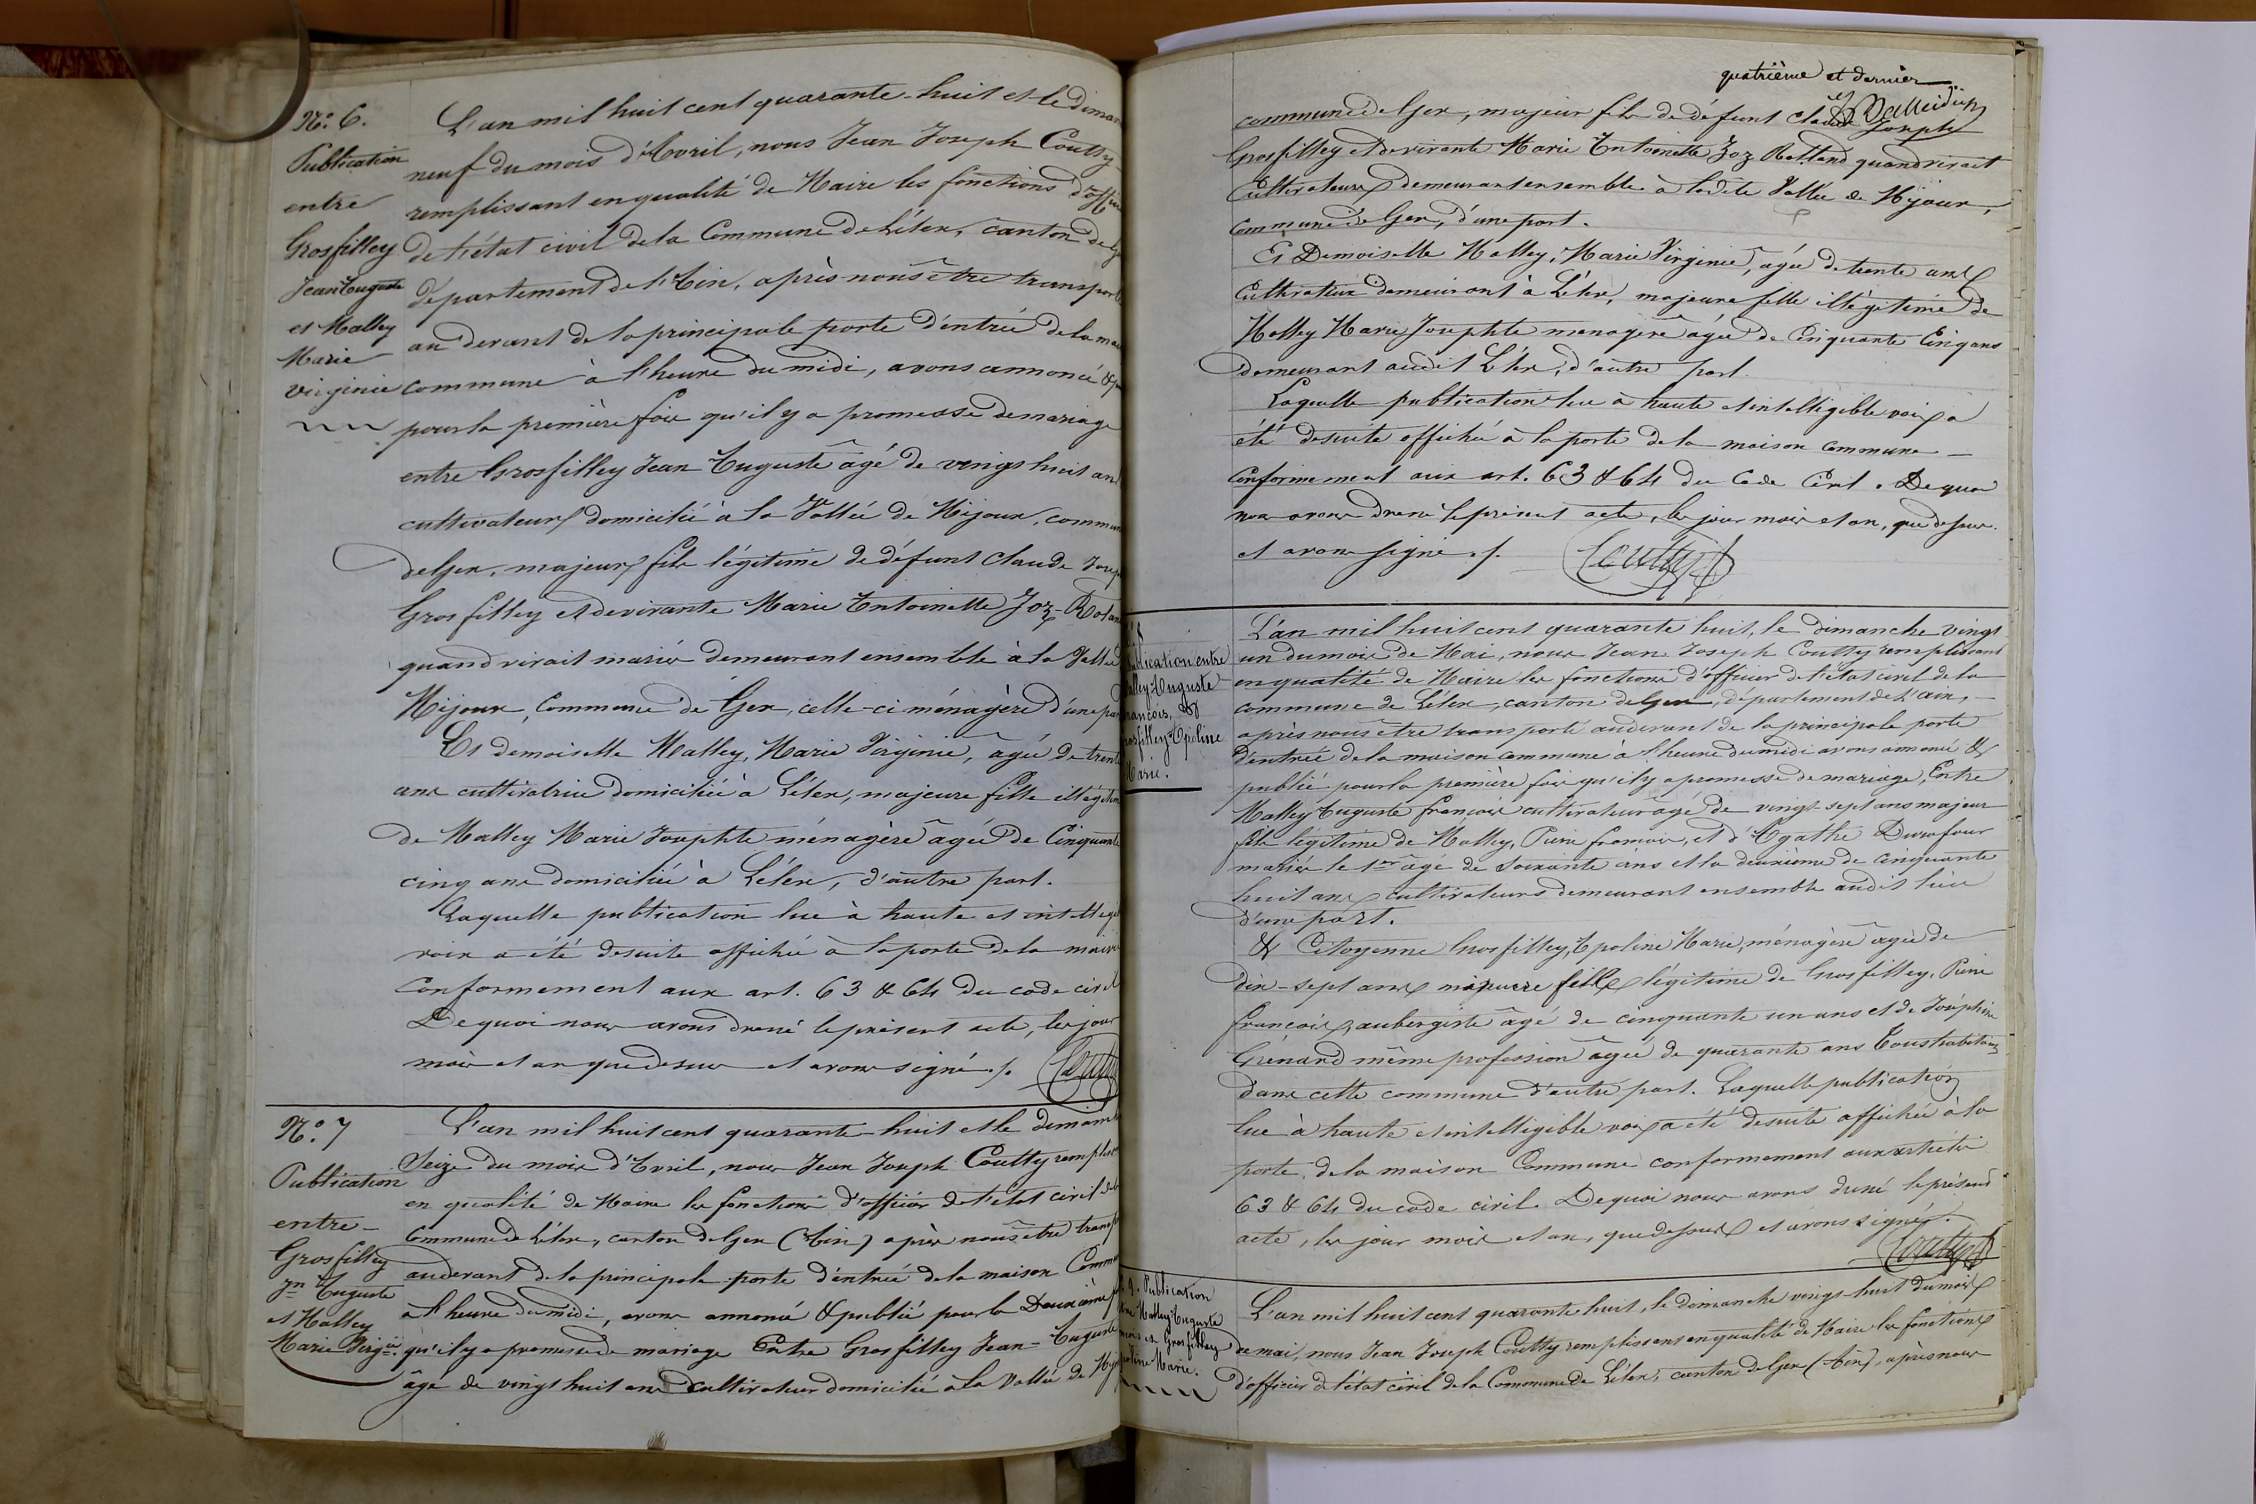 N.o 6.
Publication
entre
Grosfilley
Jean Auguste
et Malley
Marie
virginie
L'an mil huit cent quarante-huit et le diman
neuf du mois d'Avril, nous Jean Joseph Coutty
remplissant en qualité de Maire les fonctions d'offi
de l'état civil de la Commune de Lélex, canton de G
département de l'Ain, après nous être transport
au devant de la principale porte d'entrée de la ma
commune à l'heure du midi, avons annoncé &
pour la première fois qu'il y a promesse de mariage
entre Grosfilley Jean Auguste âgé de vingt huit an
cultivateur domicilié à la Vallée de Mijoux, commun
de Gex, majeur fils légitime de défunt Claude Josep
Grosfilley et de vivante Marie Antoinette Joz-Rolan
quand vivait mariés demeurant ensemble à la Vallé
Mijoux, Commune de Gex, celle-ci ménagère d'une par
Et demoiselle Malley, Marie Virginie, âgée de trente
ans cultivatrice domiciliée à Lélex, majeure fille illégitim
de Malley Marie Josephte ménagère âgée de Cinquante
cinq ans domiciliée à Lélex, d'autre part.
Laquelle publication lue à haute et intellig
voix a été desuite affichée à la porte de la mairie
Conformement aux art. 63 & 64 du code civil
De quoi nous avons dressé le présent acte, les jour
mois et an que dessus et avons signé ./. Coutt
N.o 7
Publication
entre
Grosfilley
Jn Auguste
et Malley
Marie Virgie
L'an mil huit cent quarante-huit et le dimanch
Seize du mois d'Avril, nous Jean Joseph Coutty rempliss
en qualité de Maire les fonctions d'officier de l'état civil de la
Commune de Lélex, canton de Gex (Ain) après nous être transp
au devant de la principale porte d'entrée de la maison Commu
à l'heure du midi, avons annoncé & publié pour la Deuxième
qu'il y a promesse de mariage Entre Grosfilley Jean-Auguste
âgé de vingt huit ans Cultivateur domicilié à la Vallée de Mijo
quatrième et dernier
commune de Gex, majeur fils de défunt Claude Joseph
Grosfilley et de vivante Marie Antoinette Joz Rolland quand vivait
Cultivateurs demeurant ensemble à la dite Vallée de Mijoux,
commune de Gex, d'une part.
Et Demoiselle Malley, Marie Virginie, âgée de trente ans
Cultivatrice demeurant à Lélex, majeure fille illégitime de
Malley Marie Josephte ménagère âgée de Cinquante Cinq ans
demeurant audit Lélex, d'autre part.
Laquelle publication lue à haute et intelligible voix a
été desuite affichée à la porte de la maison commune
Conformement aux art. 63 & 64 du Code Civil. De quoi
nous avons dressé le présent acte, les jour mois et an, que dessus.
et avons signé ./. Coutty
blication entre
lley Auguste
rançois, &
rosfilley Apoline
Marie.
L'an mil huit cent quarante huit, le dimanche vingt
un du mois de Mai, nous Jean Joseph Coutty remplissant
en qualité de Maire les fonctions d'officier de l'état civil de la
commune de Lélex, canton de Gex, département de l'ain,
après nous être transporté au devant de la principale porte
d'entrée de la maison commune à l'heure du midi avons annoncé &
publié pour la première fois qu'il y a promesse de mariage, Entre
Malley Auguste françois cultivateur âgé de vingt sept ans majeur
fils légitime de Malley, Pierre françois, et d'Agathe Durafour
mariés le 1er âgé de soixante ans et la deuxième de cinquante
huit ans cultivateurs demeurant ensemble audit lieu
d'une part.
& Citoyenne Grosfilley, Apoline Marie, ménagère âgée de
dix-sept ans mineure fille légitime de Grosfilley, Pierre
françois, aubergiste âgé de cinquante un ans et de Joséphine
Grénard même profession âgée de quarante ans Tous habitans
dans cette commune d'autre part. Laquelle publication
lue à haute et intelligible voix a été desuite affichée à la
porte de la maison Commune conformement aux articles
63 & 64 du code civil. De quoi nous avons dressé le présent
acte, les jour mois et an, que dessus et avons signé.
Coutty
9. Publication
Malley Auguste
et Grosfilley
Marie.
L'an mil huit cent quarante huit, le dimanche vingt-huit du mois
de mai, nous Jean Joseph Coutty remplissant en qualité de Maire les fonctions
d'officier de l'état civil de la Commune de Lélex, canton de Gex (Ain), après nous